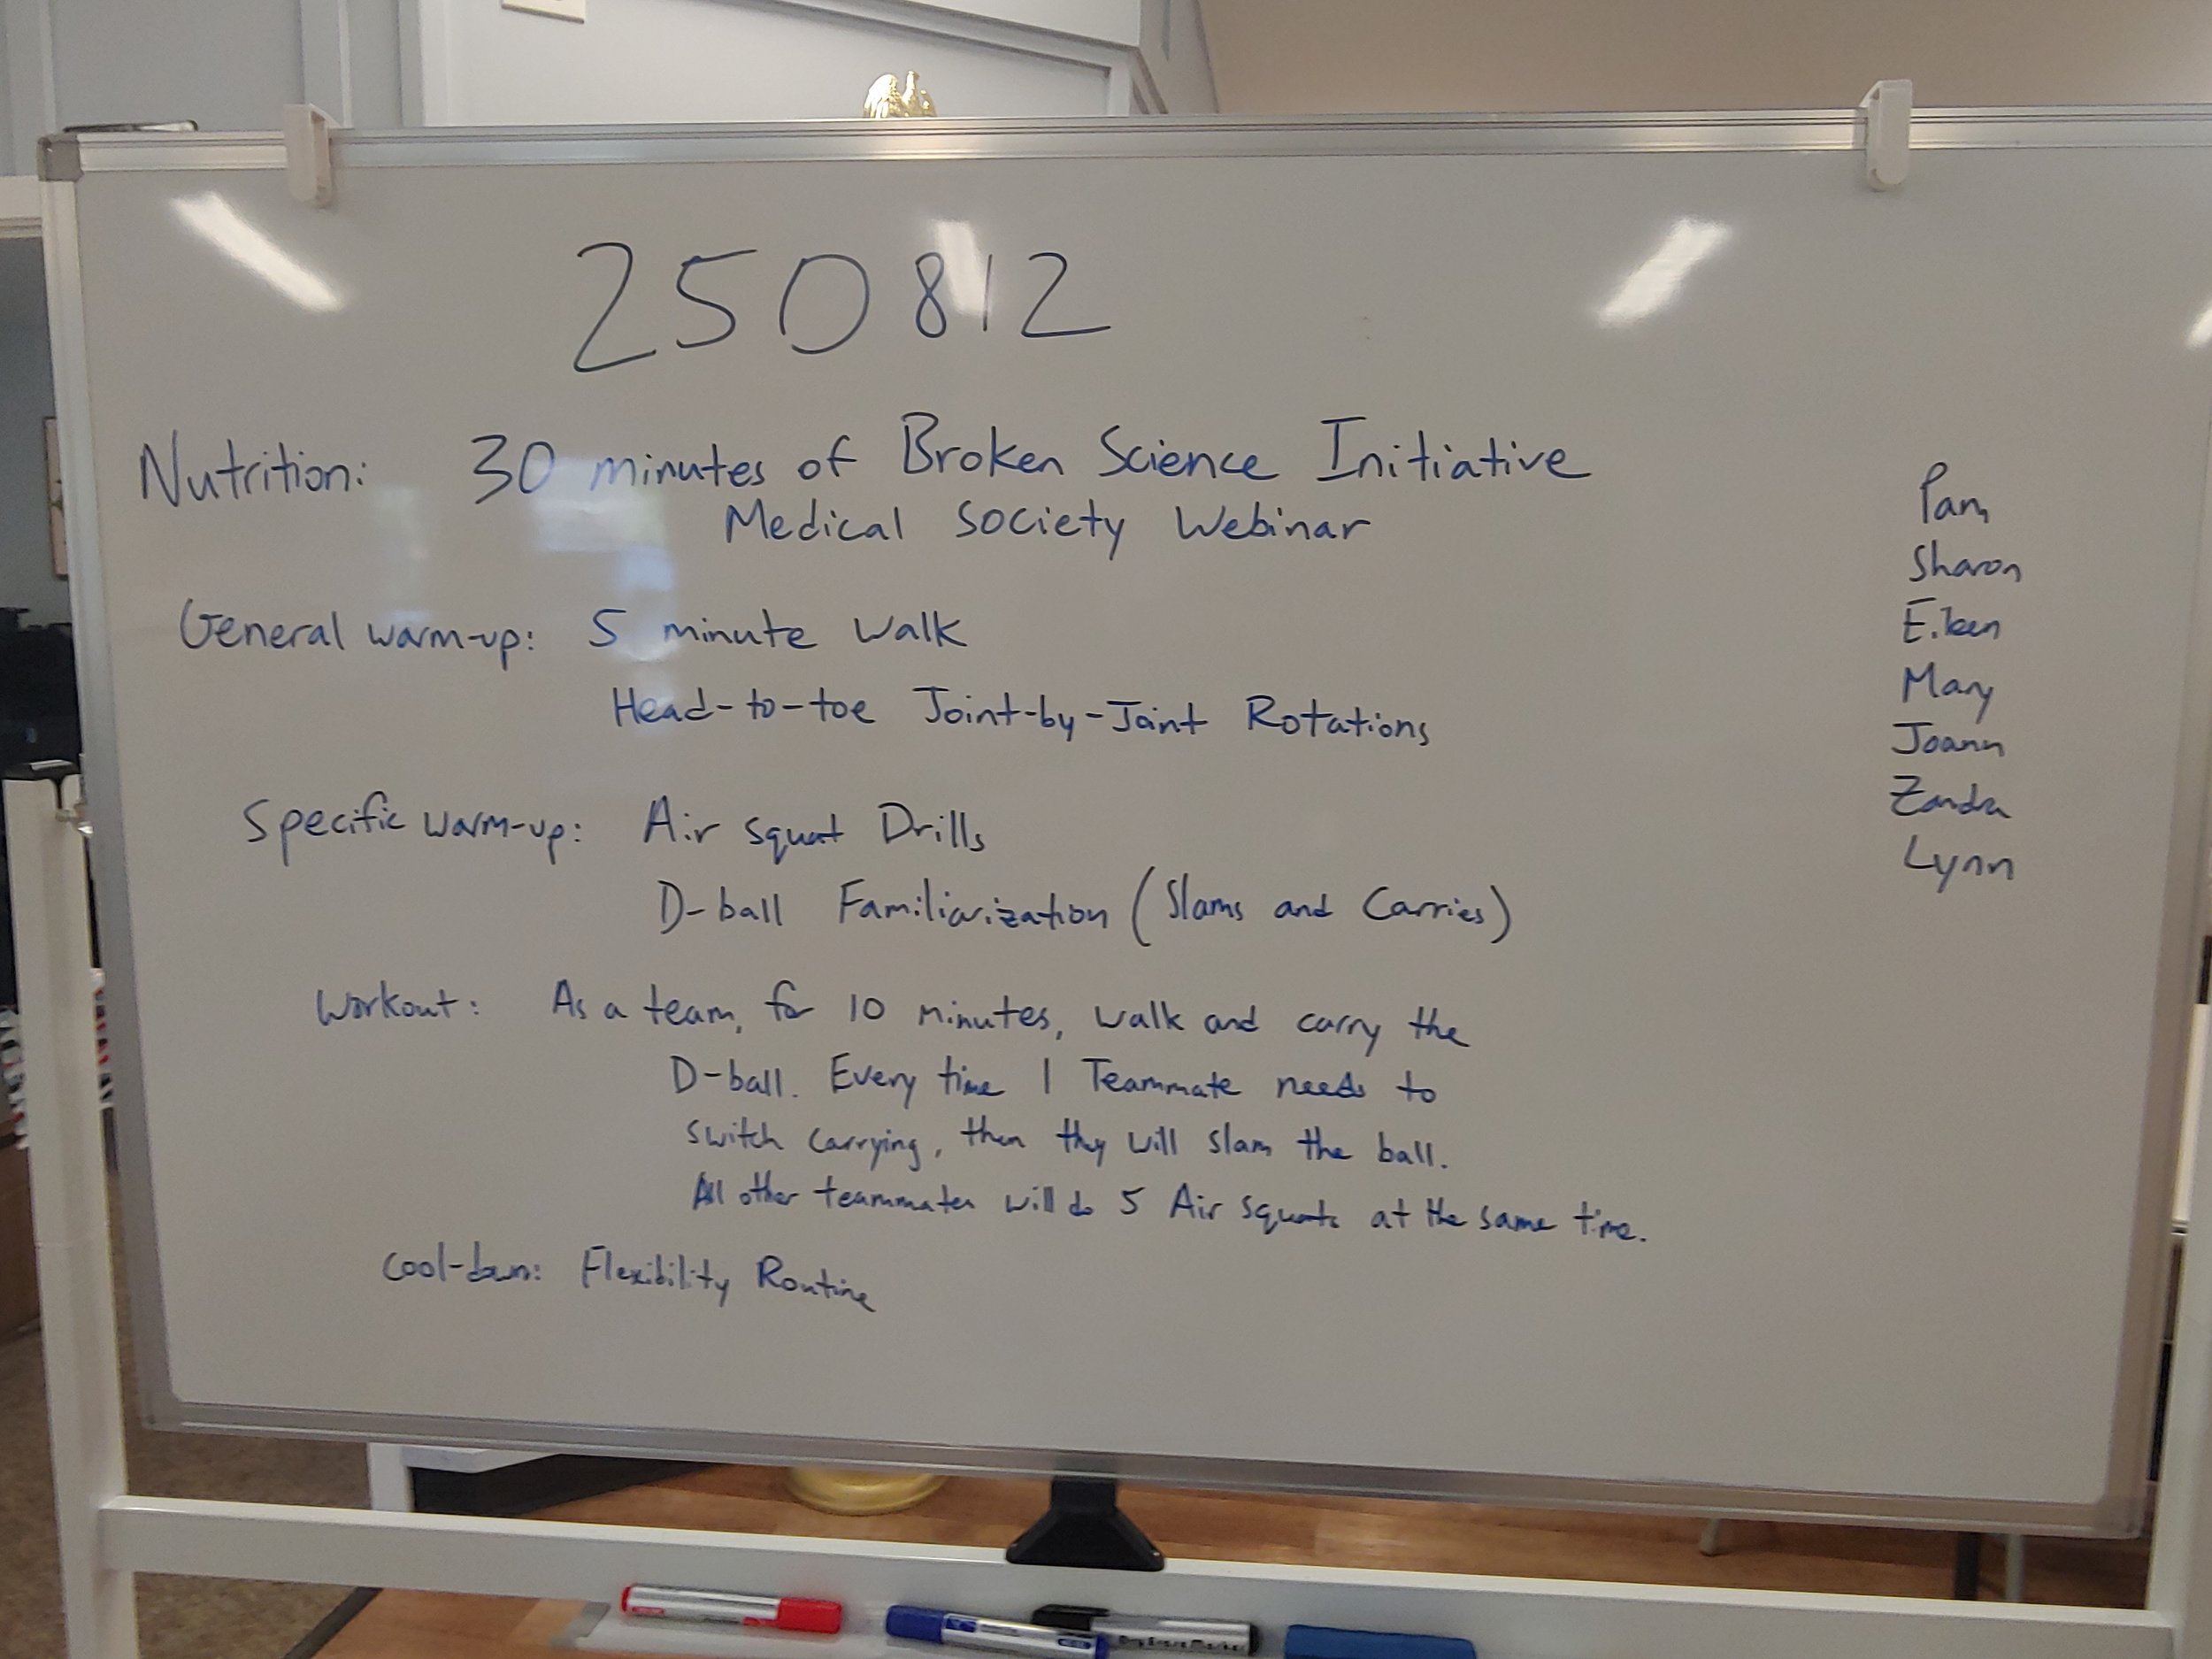 250812
Nutrition: 30 minutes of Broken Science Initiative
Medical Society Webinar
General warm-up: 5 minute walk
Head-to-toe Joint-by-Joint Rotations
Specific warm-up: Air squat Drills
D-ball Familiarization (Slams and Carries)
Workout: As a team, for 10 minutes, walk and carry the
D-ball. Every time 1 Teammate needs to
switch carrying, then they will slam the ball.
All other teammates will do 5 Air squats at the same time.
Cool-down: Flexibility Routine
Pam
Sharon
Eileen
Mary
Joann
Zandra
Lynn
Dry Erase Marker